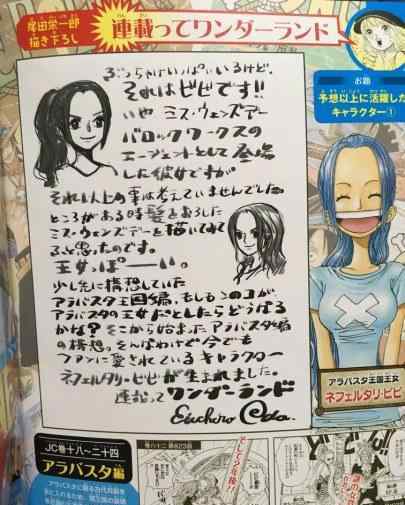 尾田栄一郎
描き下ろし
連載ってワンダーランド
お題
予想以上に活躍した
キャラクター①
ぶっちゃけいっぱいいるけど、
それはビビです!!
いや ミス・ウェンズデー
バロックワークスの
エージェントとして登場
した彼女ですが
それ以上の事は考えていませんでした。
ところがある時髪をおろした
ミス・ウェンズデーを描いてみて
ふと思ったのです。
王女っぽーい。
少し先に構想していた
アラバスタ王国編、もしもこのコが
アラバスタの王女だとしたらどうなる
かな? そこから始まった アラバスタ編
の構想。そんなわけで今でも
ファンに愛されている キャラクター
ネフェルタリ・ビビが生まれました。
連載って ワンダーランド
Eiichiro Oda.
アラバスタ王国王女
ネフェルタリ・ビビ
JC巻十八〜二十四
アラバスタ編